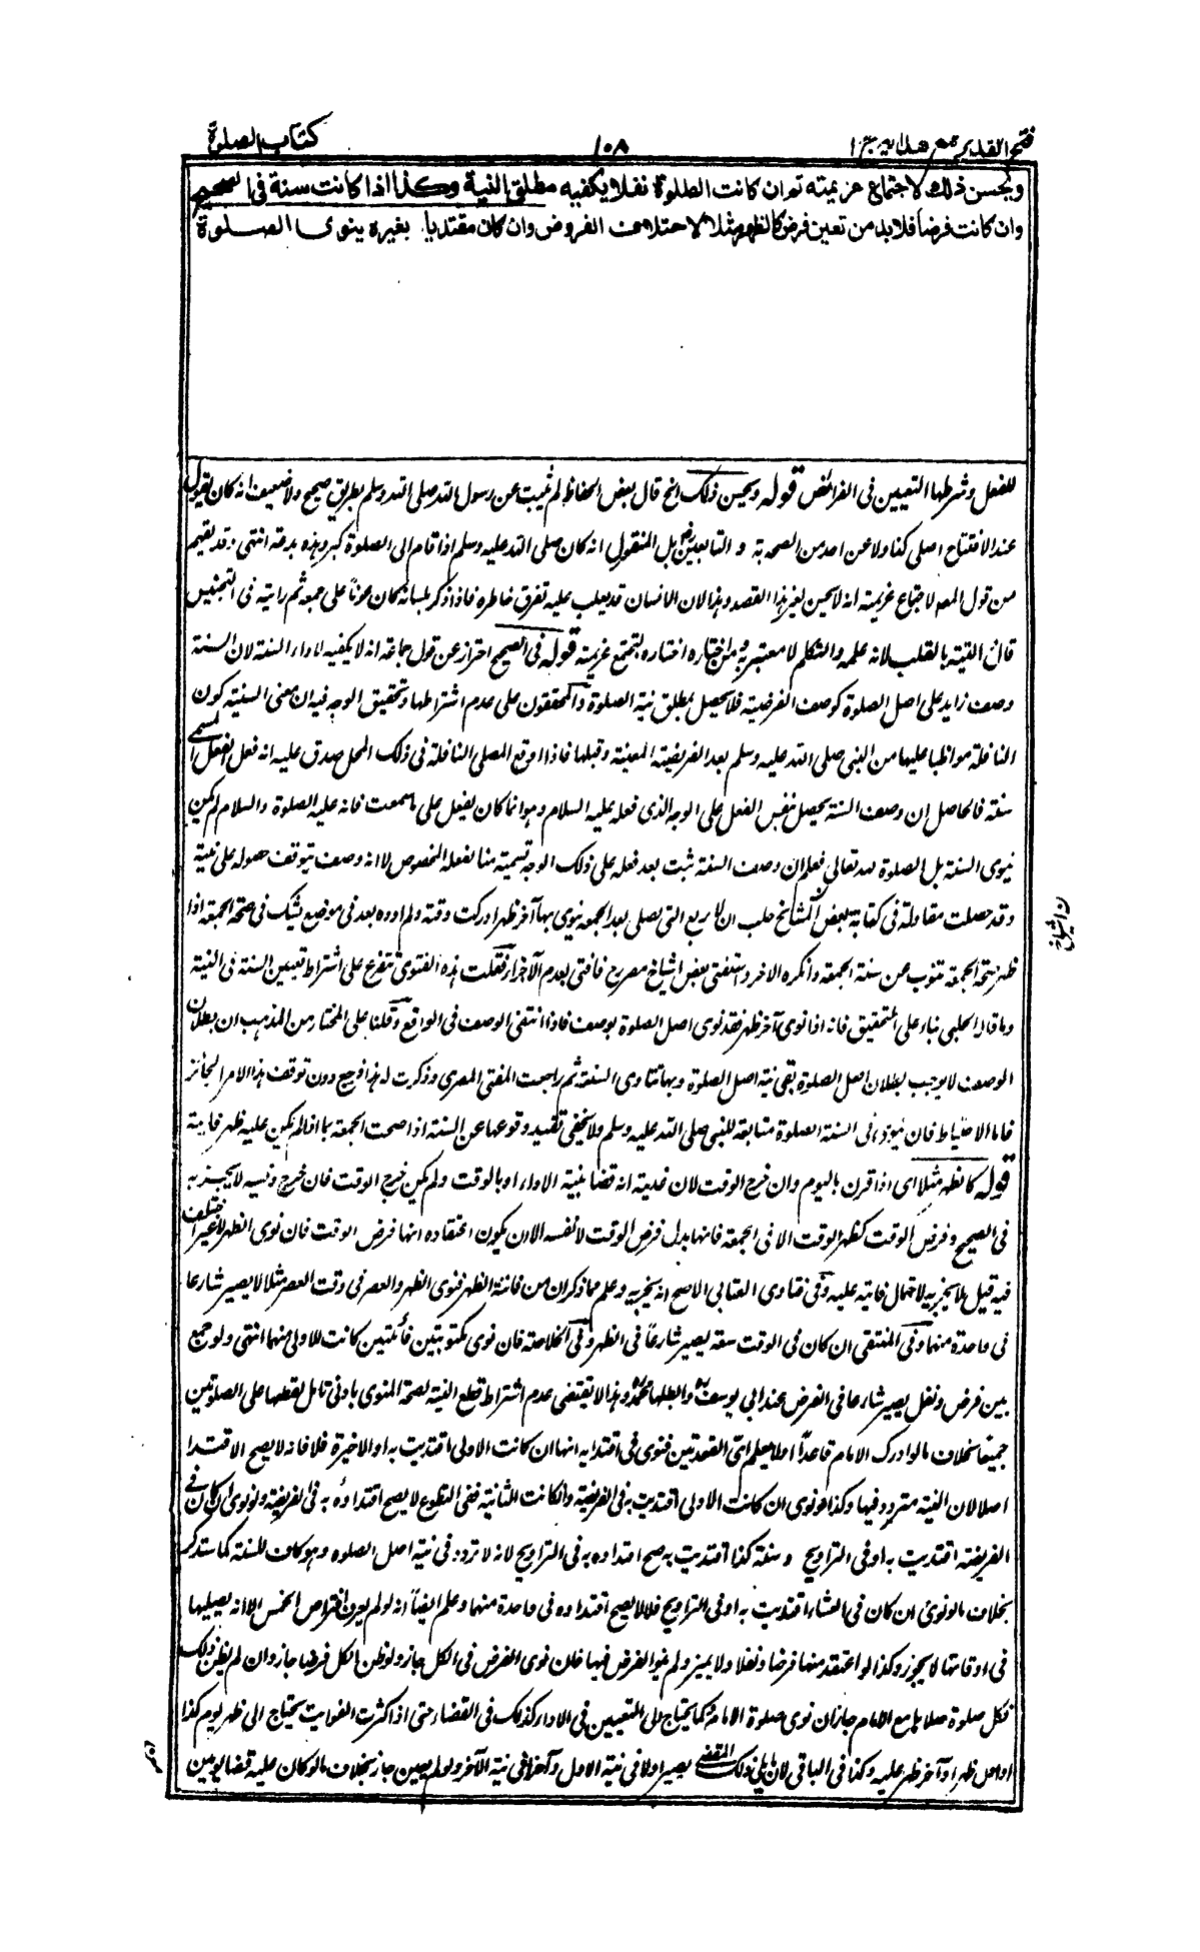 فتح القدير مع هدايه ج ١
١٠٨
كتاب الصلوة
ويحسن ذلك لاجتماع عزيمته ثم ان كانت الصلوة نفلا يكفيه مطلق النية وكذا اذا كانت سنة في الصحيح
وان كانت فرضا فلا بد من تعين فرض كالظهر مثلا لاختلاف الفروض وان كان مقتديا بغيره ينوى الصلوة
للفعل وشرطها التعيين في الفرائض قوله ويحسن ذلك الخ قال بعض الحفاظ لم يثبت عن رسول الله صلى الله عليه وسلم بطريق صحيح ولا ضعيف انه كان يقول
عند الافتتاح اصلى كذا ولا عن احد من الصحابة و التابعين بل المنقول انه كان صلى الله عليه وسلم اذا قام الى الصلوة كبر وهذه بدعة انتهى وقد يفهم
من قول المصه لاجتماع عزيمته انه لا يحسن لغير هذا القصد وهذا لان الانسان قد يغلب عليه تفرق خاطره فاذا ذكر بلسانه كان عونا على جمعه ثم رايته في التجنيس
قال النية بالقلب لانه عمله والتكلم لا معتبر به ومن اختاره اختاره لتجتمع عزيمته قوله في الصحيح احتراز عن قول جماعة انه لا يكفيه لاداء السنة لان السنة
وصف زايد على اصل الصلوة كوصف الفرضية فلا يحصل بمطلق نية الصلوة والمحققون على عدم اشتراطها وتحقيق الوجه فيه ان معنى السنية كون
النافلة مواظبا عليها من النبي صلى الله عليه وسلم بعد الفريضة المعينة وقبلها فاذا اوقع المصلى النافلة في ذلك المحل صدق عليه انه فعل الفعل المسمى
سنة فالحاصل ان وصف السنة يحصل بنفس الفعل على الوجه الذى فعله عليه السلام وهو انما كان يفعل على ما سمعت فانه عليه الصلوة والسلام لم يكن
ينوى السنة بل الصلوة لله تعالى فعلم ان وصف السنة ثبت بعد فعله على ذلك الوجه تسمية منا لفعله المخصوص لا انه وصف يتوقف حصوله على نيته
وقد حصلت مقاولة في كتابة بعض المشايخ حلب ان الاربع التى تصلى بعد الجمعة ينوى بها آخر ظهر ادركت وقته ولم اوده بعد في موضع يشك في صحة الجمعة اذا
ظهر صحة الجمعة تنوب عن سنة الجمعة وانكره الاخر واستفتى بعض اشياخ مصر رح فافتى بعدم الاجزاء فقلت هذه الفتوى تتفرع على اشتراط تعيين السنة في النية
وما قاله الحلبى بناء على التحقيق فانه اذا نوى آخر ظهر فقد نوى اصل الصلوة بوصف فاذا انتفى الوصف في الواقع وقلنا على المختار من المذهب ان بطلان
الوصف لا يوجب بطلان اصل الصلوة بقى نية اصل الصلوة وبها تتادى السنة ثم راجعت المفتى المصرى وذكرت له هذا فرجع دون توقف هذا الامر الجائز
فاما الاحتياط فان ينوى في السنة الصلوة متابعة للنبى صلى الله عليه وسلم ولا يخفى تقييد وقوعها عن السنة اذا صحت الجمعة بما اذا لم يكن عليه ظهر فايتة
قوله كالظهر مثلا اى اذا قرن باليوم وان خرج الوقت لان غايته انه قضاء بنية الاداء او بالوقت ولم يكن خرج الوقت فان خرج ونسيه لا يجزيه
في الصحيح وفرض الوقت كظهر الوقت الا في الجمعة فانها بدل فرض الوقت لا نفسه الا ان يكون اعتقاده انها فرض الوقت فان نوى الظهر لا غير اختلف
فيه قيل لا يجزيه لاحتمال فايتة عليه وفى فتاوى العتابى الاصح انه يجزيه وعلم مما ذكر ان من فاتته الظهر فنوى الظهر والعصر في وقت العصر مثلا لا يصير شارعا
في واحدة منهما وفى المنتقى ان كان في الوقت سعة يصير شارعا في الظهر وفى الخلاصة فان نوى مكتوبتين فائتتين كانت للاولى منهما انتهى ولو جمع
بين فرض ونفل يصير شارعا في الفرض عند ابى يوسف وابطلها محمد وهذا لا يقتضى عدم اشتراط قطع النية لصحة المنوى بادنى تامل لقطعها على الصلوتين
جميعا بخلاف ما لو ادرك الامام قاعدا لا يعلم اى القعدتين فنوى في اقتدايه انها ان كانت الاولى اقتديت به او الاخيرة فلا فانه لا يصح الاقتداء
اصلا لان النية متردد فيها وكذا لو نوى ان كانت الاولى اقتديت به في الفريضة وان كانت الثانية ففى التطوع لا يصح اقتداؤه به في الفريضة ولو نوى ان كان في
الفريضة اقتديت به او في التراويح و سنة كذا اقتديت به صح اقتداه به في التراويح لانه لا تردد في نية اصل الصلوه وهو كاف للسنة كما ستذكر
بخلاف ما لو نوى ان كان في العشاء اقتديت به او في التراويح فلا لا يصح اقتداه في واحدة منهما وعلم ايضا انه لو لم يعرف افتراض الخمس الا انه يصليها
في اوقاتها لا يجوز وكذا لو اعتقد منها فرضا ونفلا ولا يميز ولم ينو الفرض فيها فان نوى الفرض في الكل جاز ولو ظن الكل فرضا جاز وان لم يظن ذلك
فكل صلوة صلاها مع الامام جاز ان نوى صلوة الامام وكما يحتاج الى التعيين في الاداء كذلك في القضاء حتى اذا كثرت الفوايت يحتاج الى ظهر يوم كذا
او اول ظهر او آخر ظهر عليه وكذا في الباقى لان ما يلى ذلك المقضى يصير اولا في نية الاول وآخرا في نية الآخر ولو لم يعين جاز بخلاف ما لو كان عليه قضا يومين